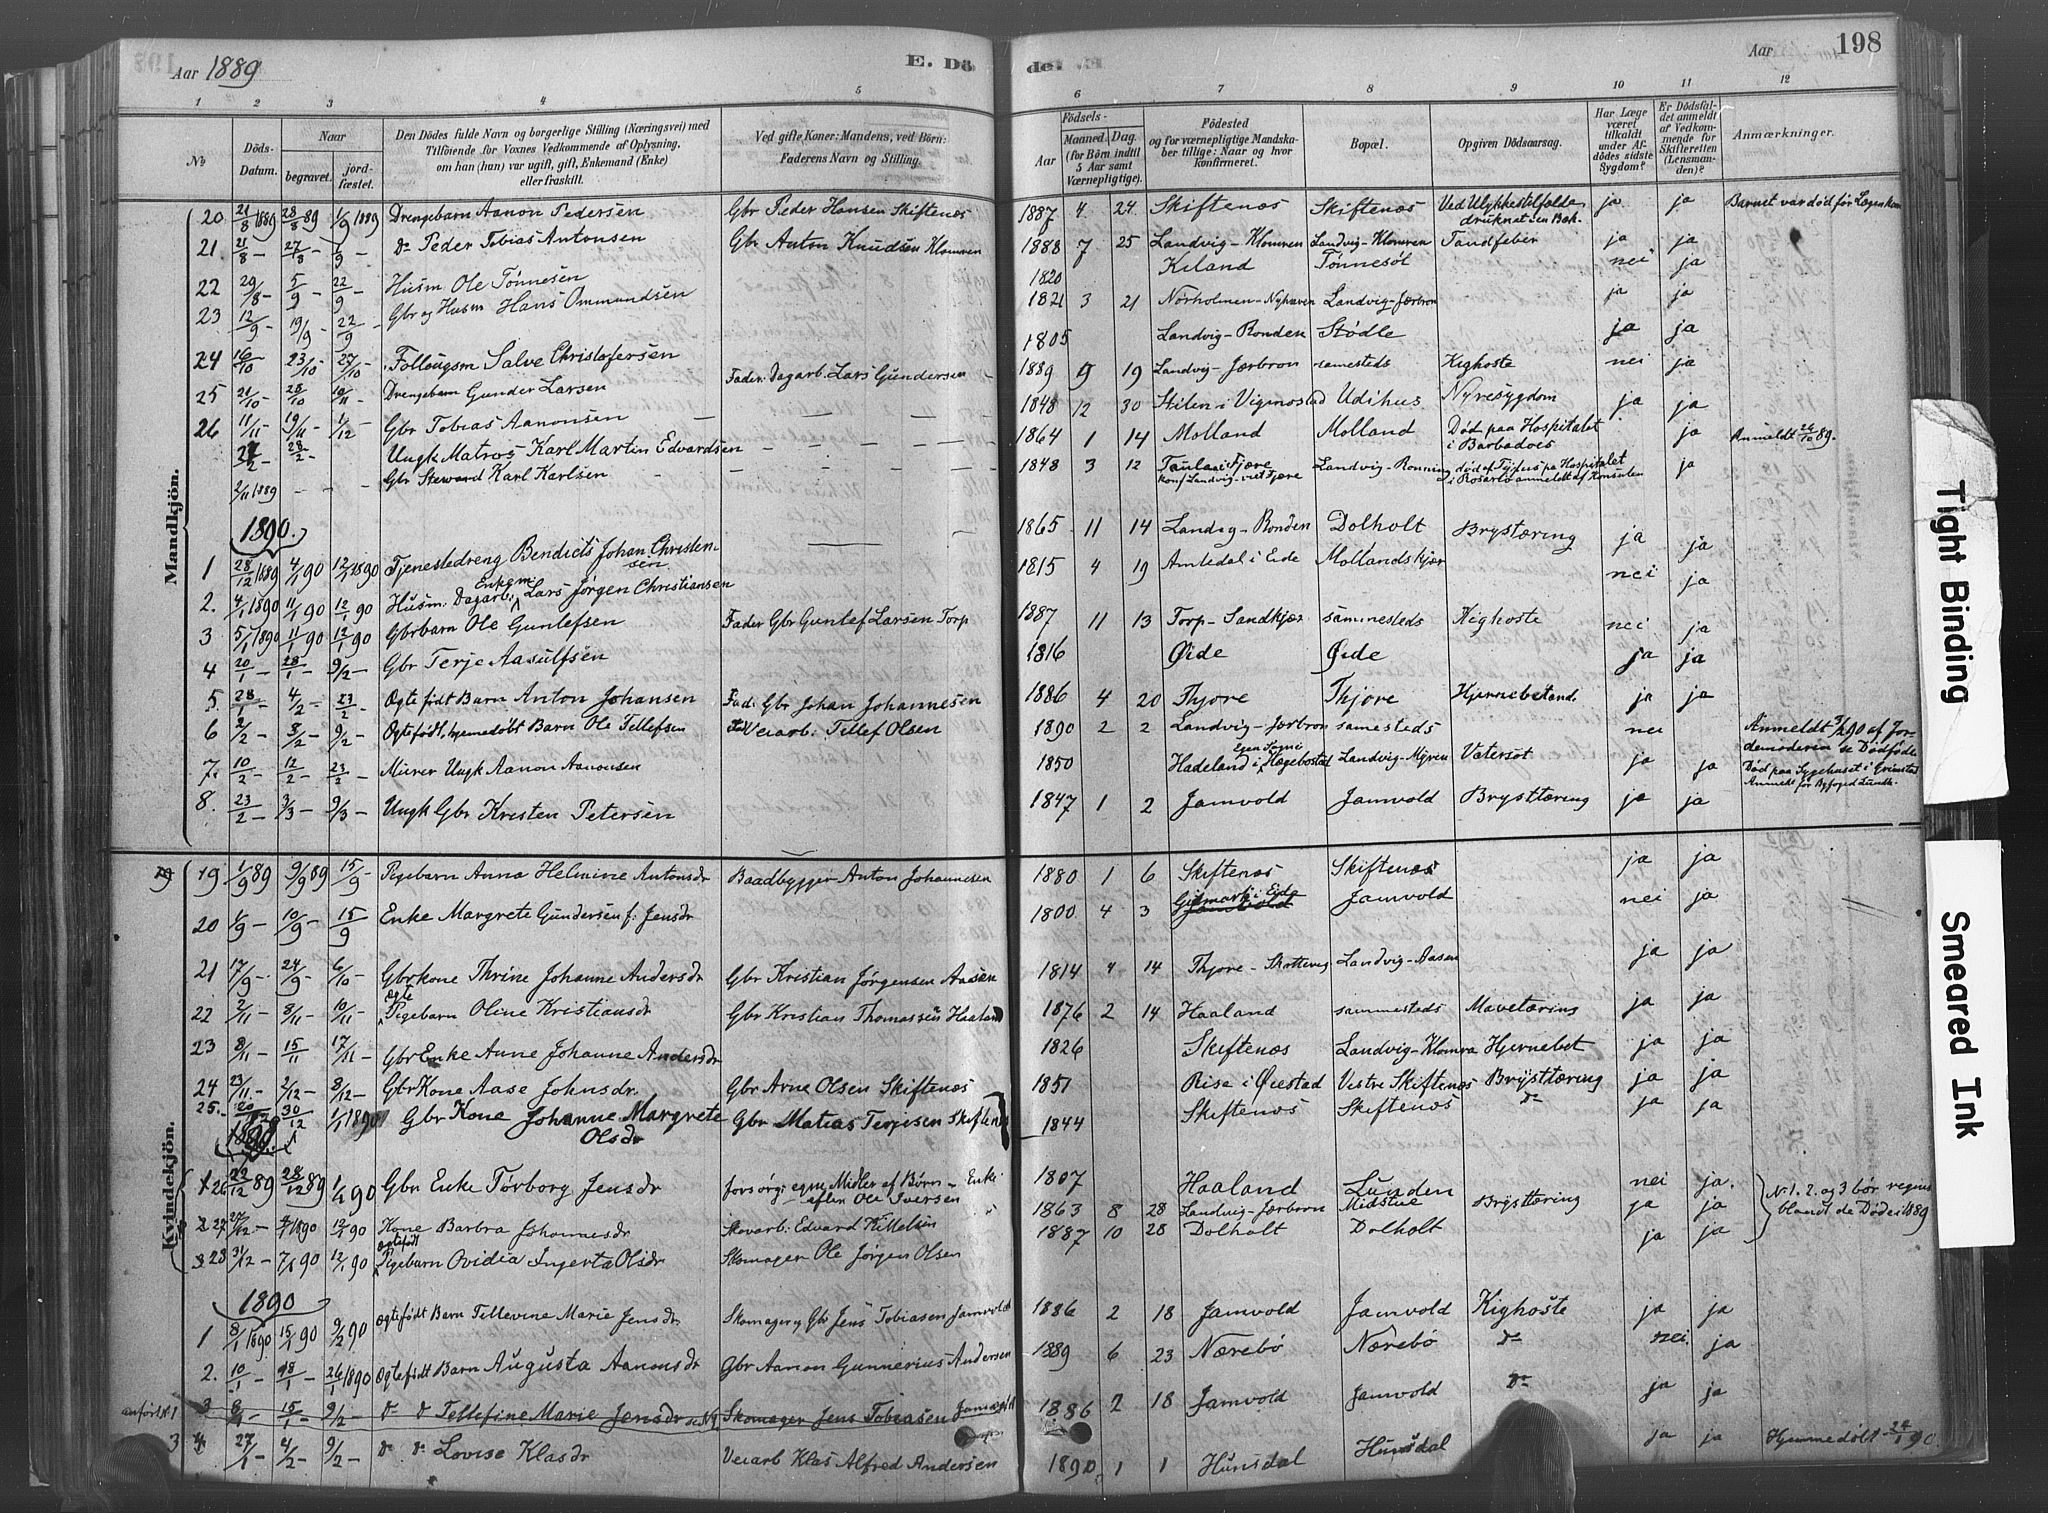 Aar 1889
E. Döde.
Aar
198
1 2 3 4 5 6 7 8 9 10 11 12
No
Döds-Datum.
Naar
begravet.
jord-fæstet.
Den Dödes fulde Navn og borgerlige Stilling (Næringsvei) med
Tilföiende for Voxnes Vedkommende af Oplysning,
om han (hun) var ugift, gift, Enkemand (Enke)
eller fraskilt.
Ved gifte Koner: Mandens, ved Börn:
Faderens Navn og Stilling.
Födsels-
Aar
Maaned. Dag.
(for Börn indtil
5 Aar samt
Værnepligtige).
Födested
og for værnepligtige Mandska-
ber tillige: Naar og hvor
konfirmeret.
Bopæl.
Opgiven Dödsaarsag.
Har Læge
været
tilkaldt
under Af-
dödes sidste
Sygdom?
Er Dödsfal-
det anmeldt
af Vedkom-
mende for
Skifteretten
(Lensman-
den)?
Anmærkninger.
Mandkjön.
20. 21/8 1889 28/8 89 1/9 1889 Drengebarn Aanon Pedersen Gbr Peder Hansen Skiftenæs 1887 4 24 Skiftenæs Skiftenæs Ved Ulykkestilfælde druknat i en Bæk. ja ja Barnet var død før Lægen kom
21. 21/8 - 27/8 - 1/9 - do Peder Tobias Antonsen Gbr Anton Knudsen Klomren 1888 7 25 Landvig-Klomren Landvig-Klomren Tandfeber ja ja
22 29/8 - 5/9 - 22/9 - Husm Ole Tønnesen 1820 Kiland Tønnesøl nei ja
23 12/9 - 19/9 - 22/9 - Gbr og Husm Hans Ommundsen 1821 3 21 Norholmen-Nyhaven Landvig-Jærbron ja ja
24 16/10 23/10 - 27/10 - Follougsm Salve Christofersen 1805 Landvig-Ronden Stødle ja ja
25 21/10 - 28/10 10/11 - Drengebarn Gunder Larsen Fader: Dagarb. Lars Gundersen 1889 9 19 Landvig-Jærbron samesteds Kighoste nei ja
26 11/11 - 19/11 - 1/12 Gbr Tobias Aanonsen - - - - 1848 12 30 Stilen i Vigmostad Udihus Nyresygdom ja ja
2/2 - 28/2 - Ungk Matros Karl Martin Edvardsen - - - - 1864 1 14 Molland Molland Død paa Hospitalet i Barbados ja Anmeldt 26/10 89.
2/11 1889 - - - Gbr Steward Karl Karlsen - 1848 3 12 Taulan i Fjære konf Landvig-ved Fjære Landvig-Ronning død af Tyfus pa Hospitalet i Rosario anmeldt af Konsulen ja
1890.
1 28/12 1889 4/1 90 12/1 1890 Tjenestedreng Bendicts Johan Christensen 1865 11 14 Landvg-Ronden Dolholt Brystæring ja ja
2. 4/1 1890 11/1 90 12/1 90 Husm: Dagarb: Enkem Lars Jørgen Christiansen 1815 4 19 Amledal i Eide Mollandskjær nei ja
3 5/1 1890 11/1 90 12/1 90 Gbrbarn Ole Guntefsen Fader Gbr Guntef Larsen Torp 1887 11 13 Torp-Sandkjær sammesteds Kighoste nei ja
4 20/1 - 28/1 - 9/2 - Gbr Terje Aasulfsen 1816 Øide Øide ja ja
5. 28/1 - 4/2 - 23/2 - Ægte født Barn Anton Johansen Fad: Gbr Johan Johannesen 1886 4 20 Thjore Thjore Hjernebetænd. ja ja
6 2/2 - 8/2 - 9/2 - Ægtefødt, hjemedøbt Barn Ole Tellefsen Veiarb: Tellef Olsen 1890 2 2 Landvig-Jærbron samesteds nei Anmeldt 3/2 90 af Jordemoderen se Dødføde
7. 10/2 - 12/2 - 23/2 - Murer Ungk Aanon Aanonsen 1850 Hadeland i Egen Sogn i Hægebostad Landvig-Myren Vatersot ja ja Død paa Sygehuset i Grimstad Anmeldt for Byfoged Lundh
8. 23/2 - 3/3 - 9/3 - Ungk Gbr Kristen Petersen 1847 1 2 Jamvold Jamvold Brysttæring ja ja
Kvindekjön.
19 19 1/9 89 9/9 89 15/9 - Pigebarn Anna Helmine Antonsdr Baadbygger Anton Johannesen 1880 1 6 Skiftenæs Skiftenæs ja ja
20 1/9 - 10/9 - 15/9 Enke Margrete Gundersen f: Jensdr 1800 4 3 Gidmark i Eide Jamvold Jamvold nei ja
21 17/9 - 24/9 - 6/10 Gbrkone Thrine Johanne Andersdr Gbr Kristian Jørgensen Aasen 1814 4 14 Thjore-Skottevig Landvig-Aasen ja ja
22 2/11 - 8/11 - 10/11 - ægte Pigebarn Oline Kristiansdr Gbr Kristian Thomassen Haaland 1876 2 14 Haaland sammesteds Mavetæring ja ja
23 8/11 - 15/11 17/11 - Gbr Enke Anne Johanne Andersdr 1826 Skiftenæs Landvig-Klomra Hjernebet ja ja
24 23/11 - 2/12 - 8/12 - Gbr Kone Aase Johnsdr. Gbr Arne Olsen Skiftenæs 1851 Rise i Øiestad Vestre Skiftenæs Brysttæring ja ja
25. 20/12 30/12 1/1 1890 Gbr Kone Johanne Margrete Olsdr Gbr Matias Terjesen Skiftenæs 1844 Skiftenæs Skiftenæs do ja ja
1890
1 26 22/12 89 28/12 89 1/1 90 Gbr Enke Tørborg Jensdr forsørg: egne Midler af Børn - Enke - efter Ole Iversen 1807 Haaland Lunden nei ja. No 1. 2. og 3 bør regnes
2 27 27/12 - 4/1 1890 12/1 90 Kone Barbra Johannesdr Skovarb: Edvard Kittelsen 1863 8 28 Landvig-Jærbron Midstue Brysttæring ja ja blandt de Døde i 1889
3 28 31/12 - 7/1 90 12/1 90 Ægtefødt Pigebarn Ovidia Ingerta Olsdr Skomager Ole Jørgen Olsen 1887 10 28 Dolholt Dolholt ja ja
1890
1 8/1 1890 15/1 90 9/2 90 Ægtefødt Barn Tellevine Marie Jensdr. Skomager og Gbr Jens Tobiasen Jamvold 1886 2 18 Jamvold Jamvold Kighoste ja ja
2. 10/1 - 18/1 - 26/1 1890 Ægtefødt Barn Augusta Aanonsdr Gbr Aanon Gunnerius Andersen 1889 6 23 Nærebø Nærebø do nei ja
anført No 1 3 8/1 - 15/1 - 9/2 - do do Tellefine Marie Jensdr se No 1 Skomager Jens Tobiasen Jamvold 1886 2 18 Jamvold Jamvold do ja ja
3 4. 27/1 - 4/2 - 9/2 - do do Lovise Klasdr Veiarb Klas Alfred Andersen 1890 1 1 Hunsdal Hunsdal ja ja Hjemmedøbt 24/1 90.
Tight Binding
Smeared Ink